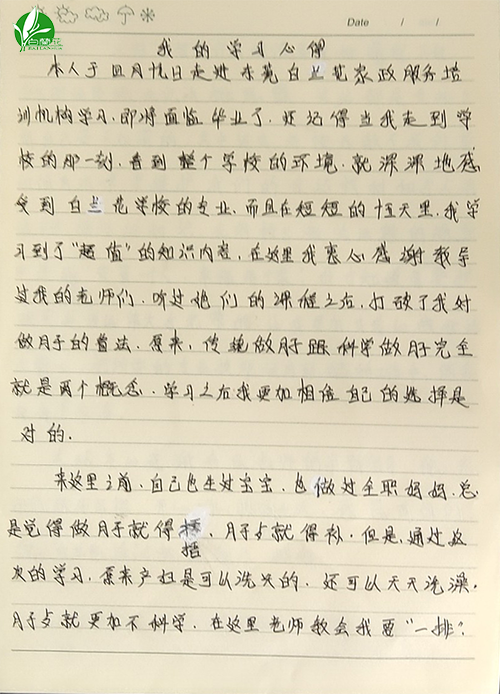 白兰花
BAILANHUA
Date / /
我的学习心得
本人于四月九日走进东莞白兰花家政服务培
训机构学习,即将面临毕业了,还记得当我走到学
校的那一刻,看到整个学校的环境,就深深地感
受到白兰花学校的专业,而且在短短的十五天里,我学
习到了“超值”的知识内容,在这里我衷心感谢教导
过我的老师们,听过她们的课程之后,打破了我对
做月子的看法。原来,传统做月子跟科学做月子完全
就是两个概念,学习之后我更加相信自己的选择是
对的。
来这里之前,自己也生过宝宝,也做过全职妈妈,总
是觉得做月子就得捂,月子就得,但是,通过这
次的学习,原来产妇是可以洗头的,还可以天天洗澡,
月子就更加不科学,在这里老师教会我要“一排”,